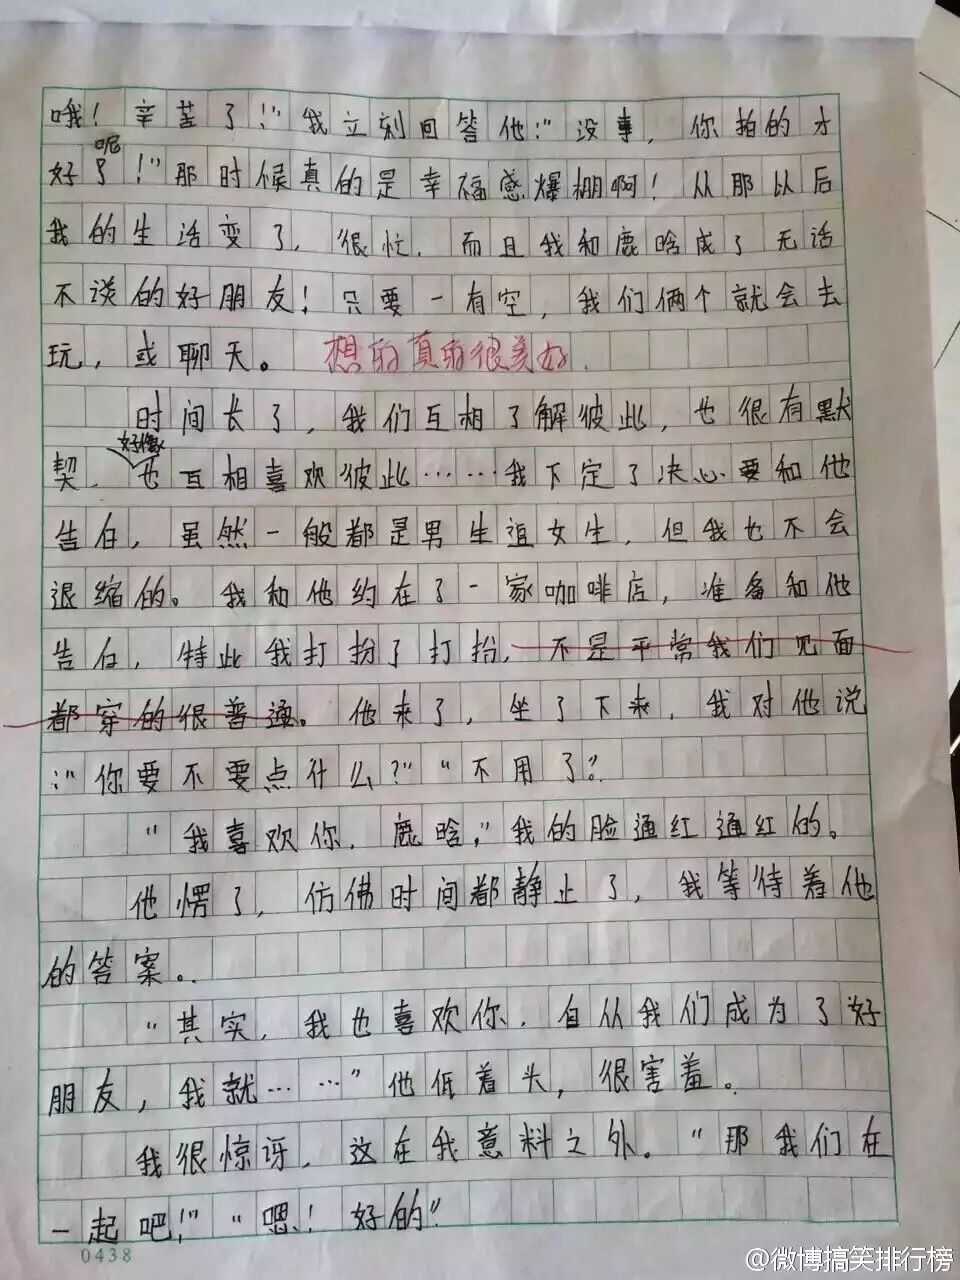 哦！辛苦了！”我立刻回答他：“没事，你拍的才
好呢！”那时候真的是幸福感爆棚啊！从那以后
我的生活变了，很忙，而且我和鹿晗成了无话
不谈的好朋友！只要一有空，我们俩个就会去
玩，或聊天。 想的真的很美好.
时间长了，我们互相了解彼此，也很有默
契，好像也互相喜欢彼此……我下定了决心要和他
告白，虽然一般都是男生追女生，但我也不会
退缩的。我和他约在了一家咖啡店，准备和他
告白，特此我打扮了打扮，不是平常我们见面
都穿的很普通。他来了，坐了下来，我对他说
：“你要不要点什么？”“不用了”。
“我喜欢你，鹿晗，”我的脸通红通红的。
他愣了，仿佛时间都静止了，我等待着他
的答案。
“其实，我也喜欢你，自从我们成为了好
朋友，我就……”他低着头，很害羞。
我很惊讶，这在我意料之外。“那我们在
一起吧！”“嗯！好的”
0438
@微博搞笑排行榜